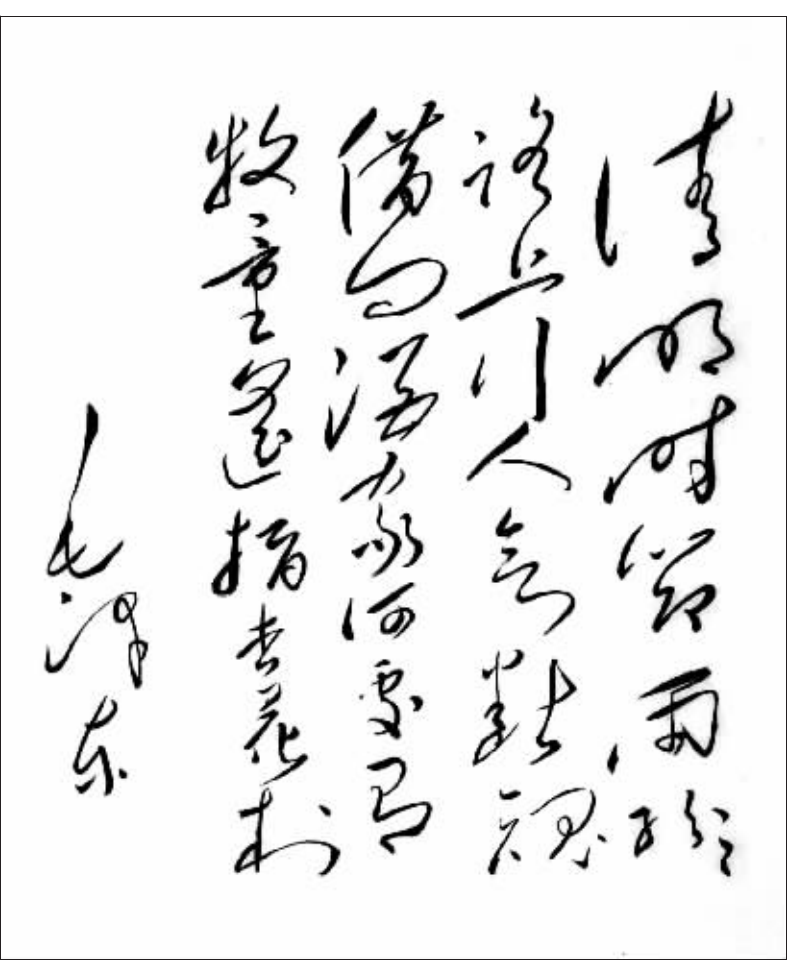 清明时节雨纷纷
路上行人欲断魂
借问酒家何处有
牧童遥指杏花村
毛泽东